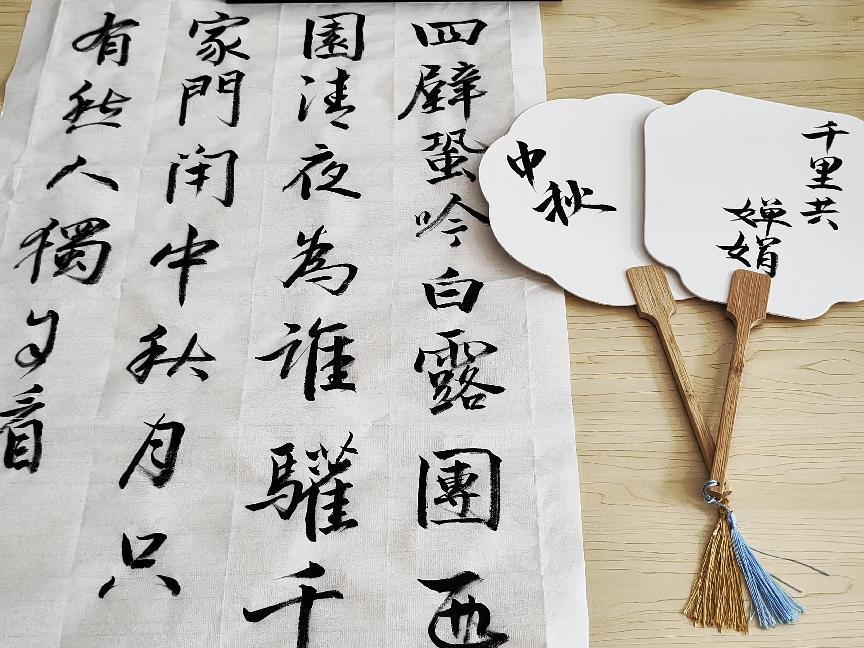 四壁蛩吟白露團西
園清夜為誰驩千
家門閉中秋月只
有愁人獨自看
中秋
千里共
嬋娟